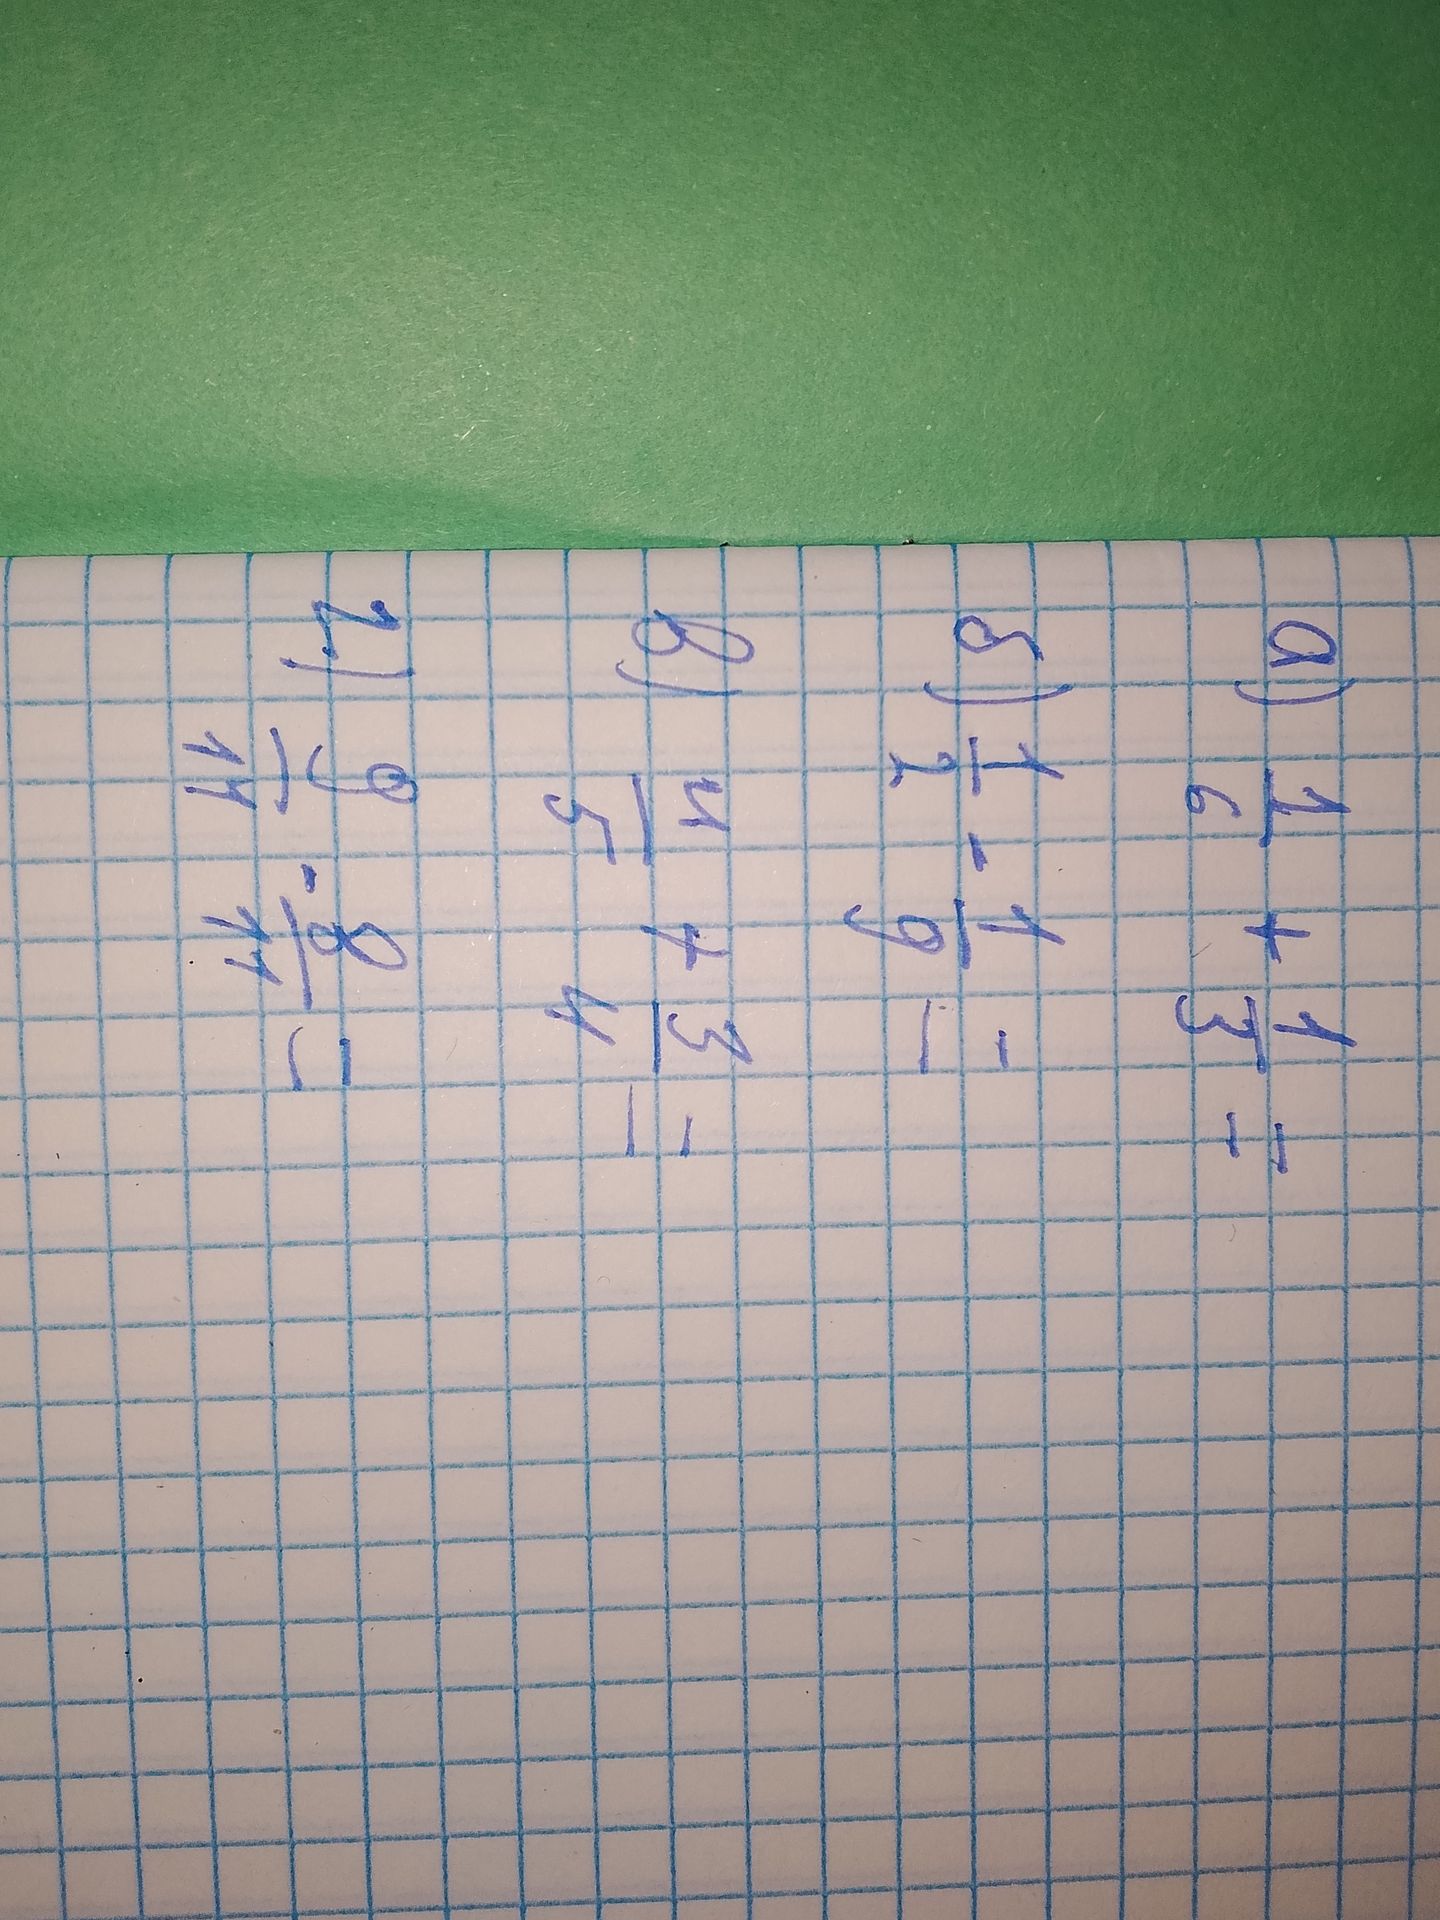 а) 1/6 + 1/3 =
б) 1/2 - 1/9 =
в) 4/5 + 3/4 =
г) 9/14 - 8/11 =